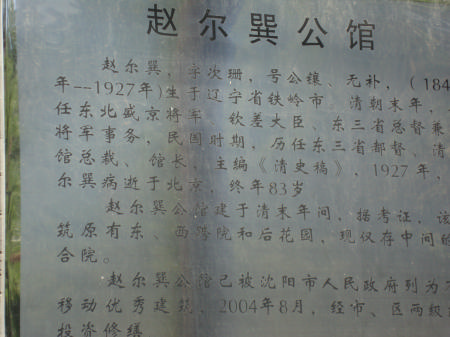 赵尔巽公馆
赵尔巽,字次珊,号公镶、无补,(184
年--1927年)生于辽宁省铁岭市。清朝末年,
任东北盛京将军、钦差大臣、东三省总督兼
将军事务,民国时期,历任东三省都督、清
馆总裁、馆长,主编《清史稿》,1927年,
尔巽病逝于北京,终年83岁
赵尔巽公馆建于清末年间,据考证,该
筑原有东、西跨院和后花园,现仅存中间的
合院。
赵尔巽公馆已被沈阳市人民政府列为不
移动优秀建筑,2004年8月,经市、区两级
投资修缮